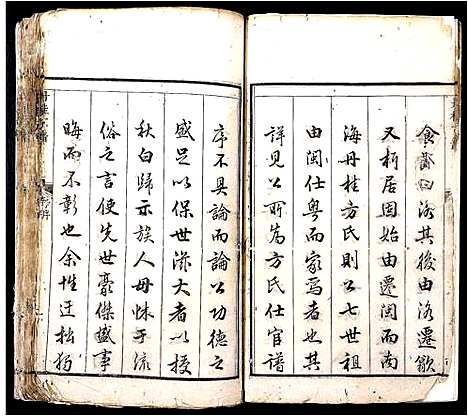 食舊曰洛其後由洛遷歙
又析居固始由遷閩而南
海丹桂方氏則公七世祖
由閩仕粵而家焉者也其
詳見公所為方氏仕官譜
序不具論而論公功德之
盛足以保世滋大者以授
秋白歸示族人毋怵于流
俗之言使先世豪傑盛事
晦而不彰也余性迂拙猶